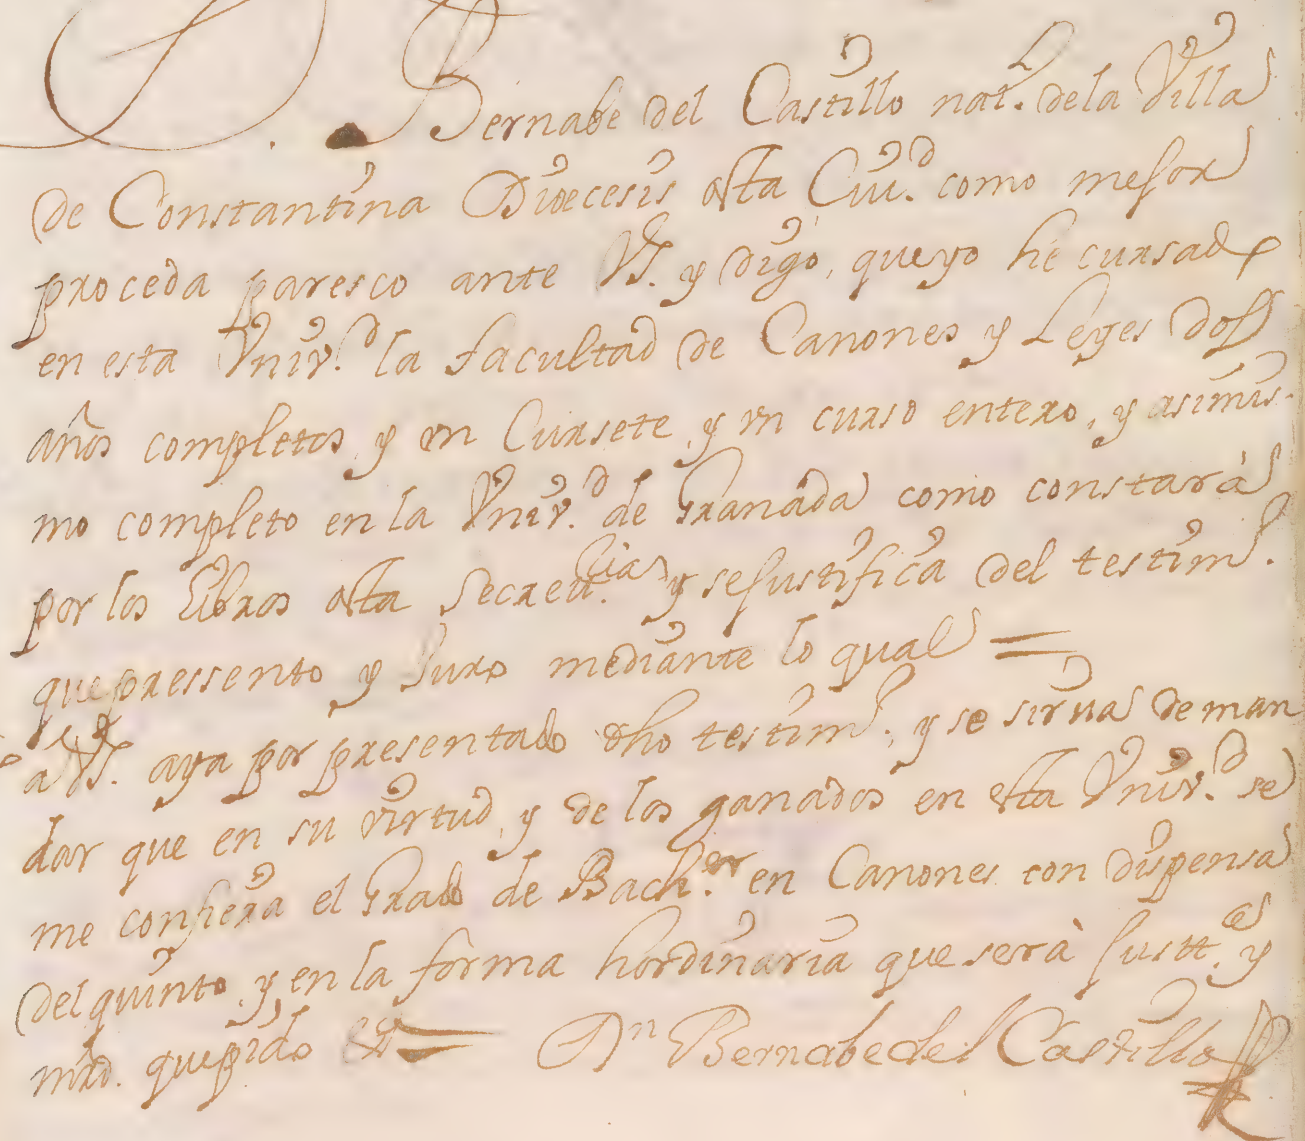 D. Bernabe del Castillo nat.l de la Villa
de Constantina Diocesis desta Ciu.d como mejor
proceda paresco ante VS. y digo, que yo hè cursado
en esta Vniv.d la facultad de Canones y Leyes dos
años completos y vn Cursete, y vn curso entero, y asimis-
mo completo en la Vniv.d de Granada como constarà
por los Libros desta Secret.cia y se justifica del testim.o
que pressento y Juro mediante lo qual =
a VS. aya por presentado dho testim.o, y se sirva de man
dar que en su virtud, y de los ganados en esta Vniv.d se
me confiera el Grado de Bach.er en Canones con dispensa
del quinto, y en la forma hordinaria que serà Justt.a y
mrd. que pido &.a =  Dn Bernabe del Castillo